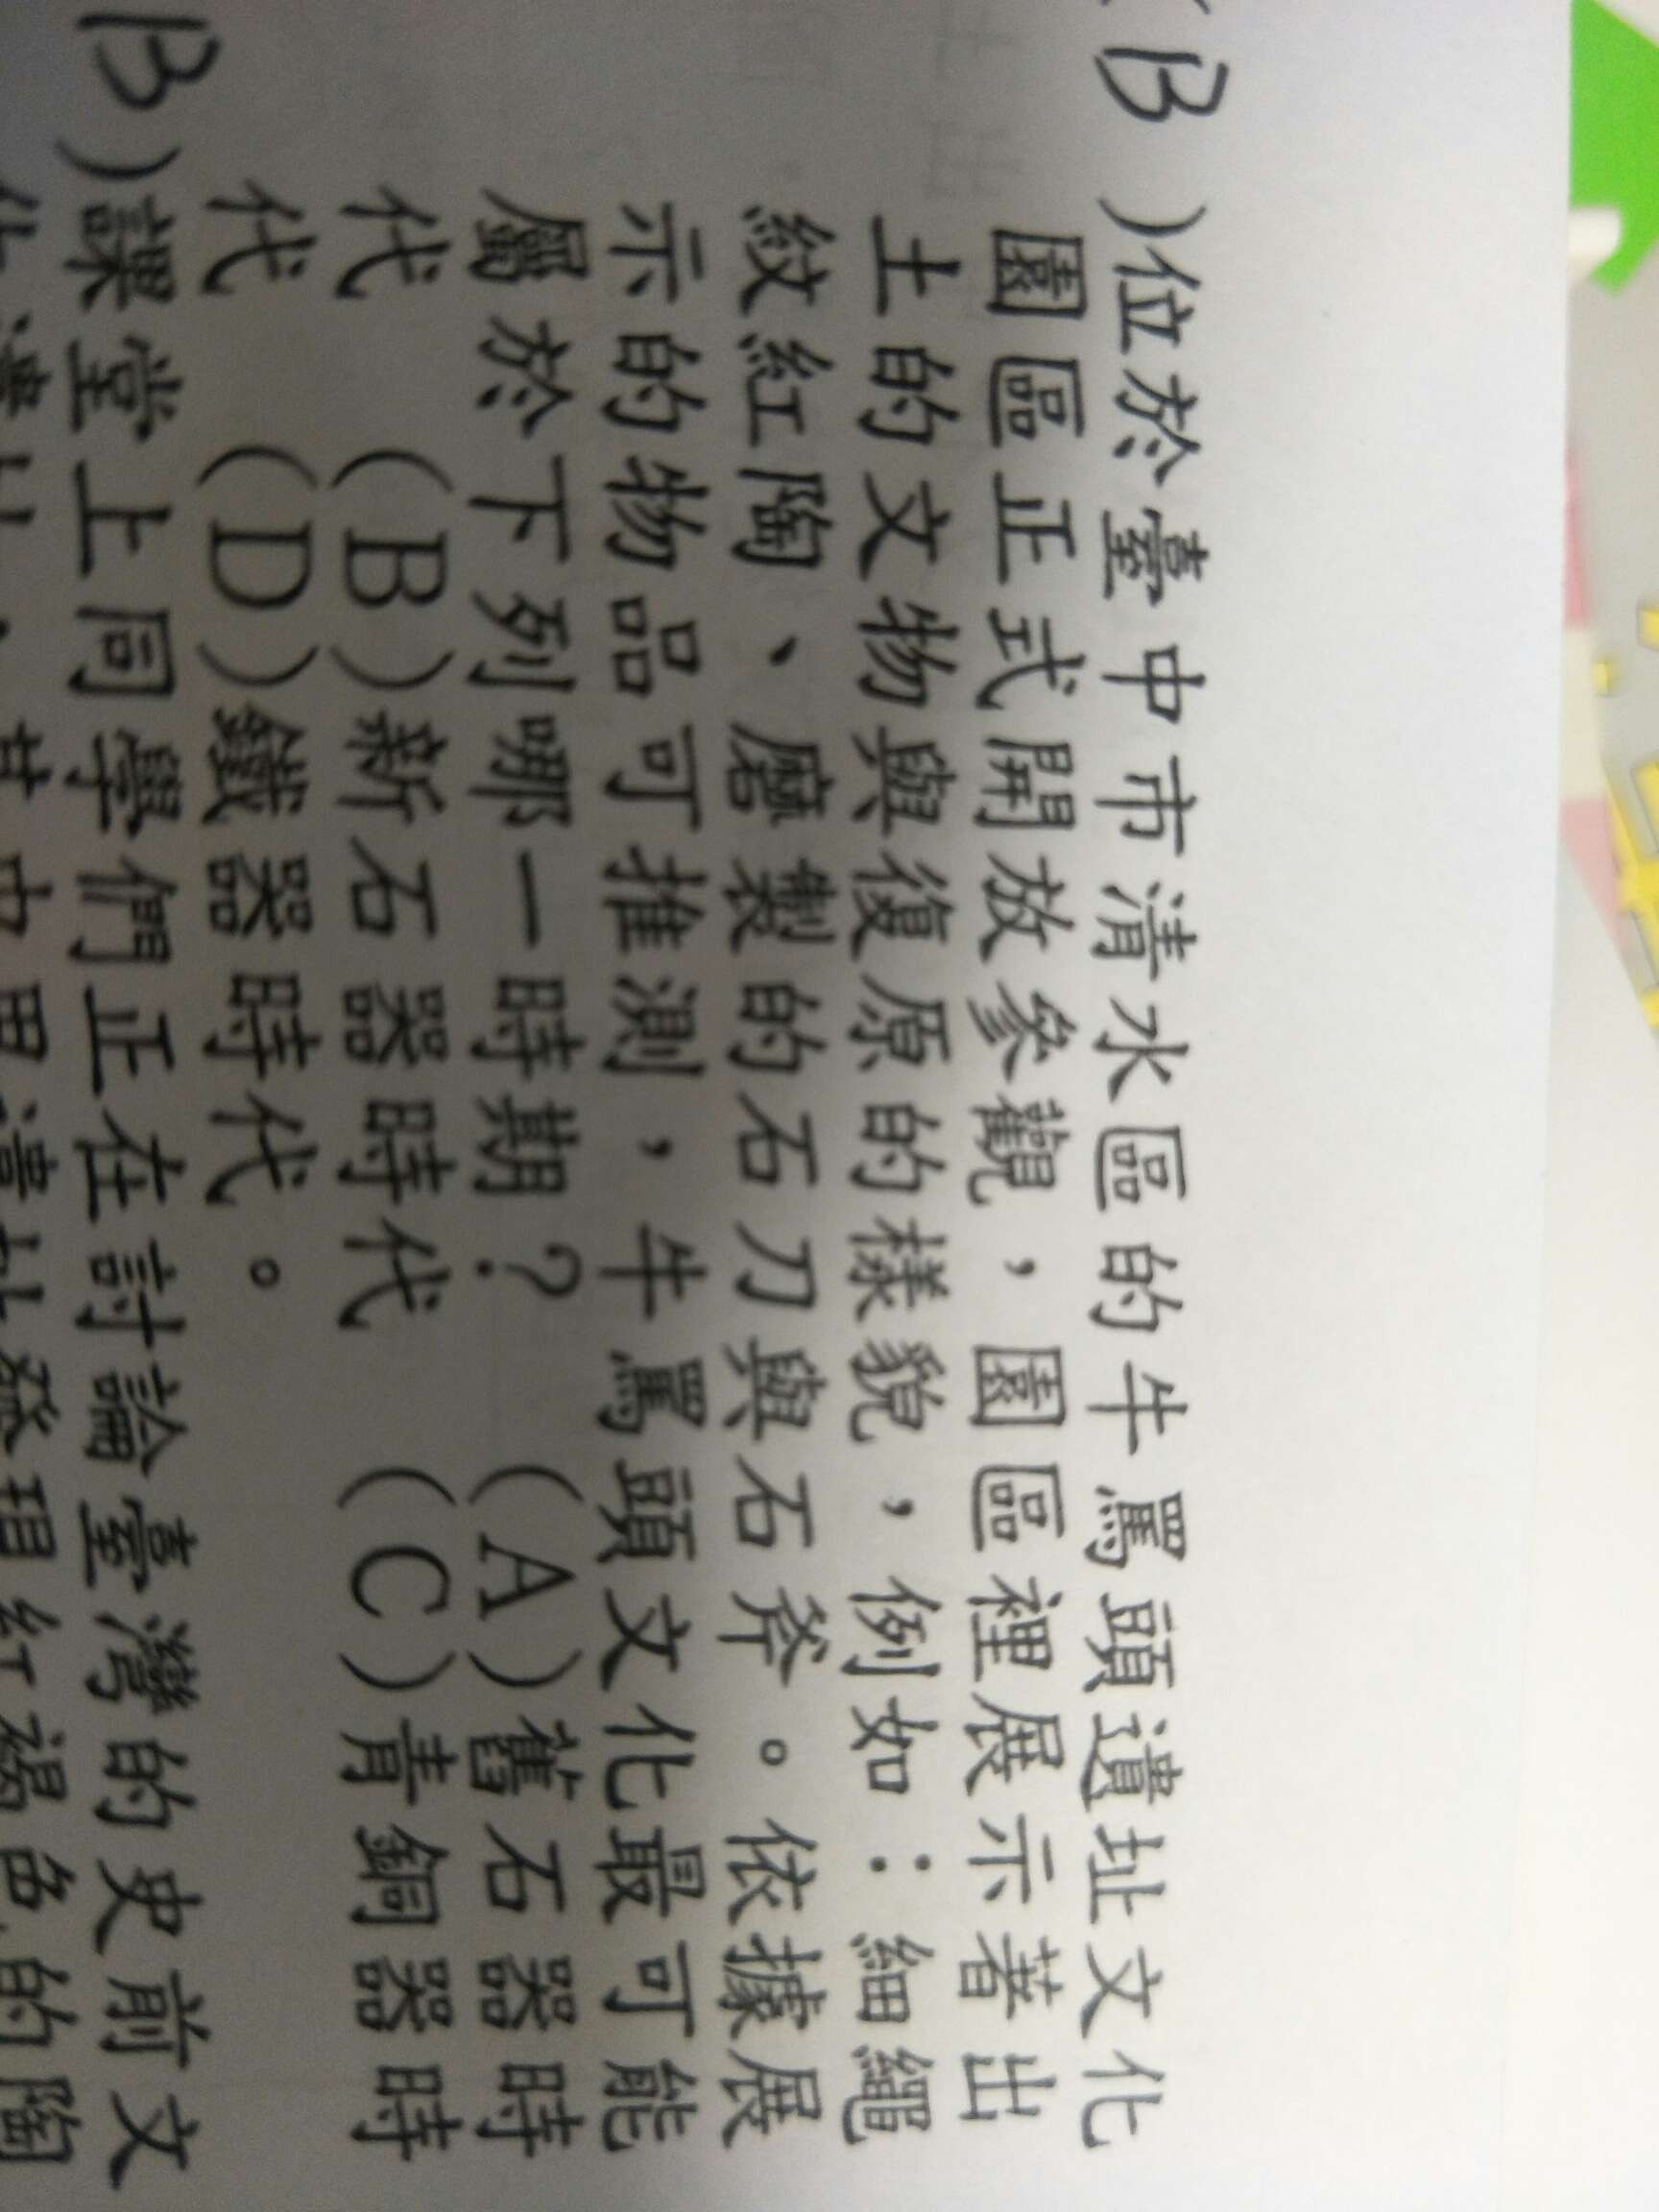 ( B )位於臺中市清水區的牛罵頭遺址文化
園區正式開放參觀，園區裡展示著出
土的文物與復原的樣貌，例如：細繩
紋紅陶、磨製的石刀與石斧。依據展
示的物品可推測，牛罵頭文化最可能
屬於下列哪一時期？ (A)舊石器時
代 (B)新石器時代 (C)青銅器時
代 (D)鐵器時代。
B )課堂上同學們正在討論臺灣的史前文